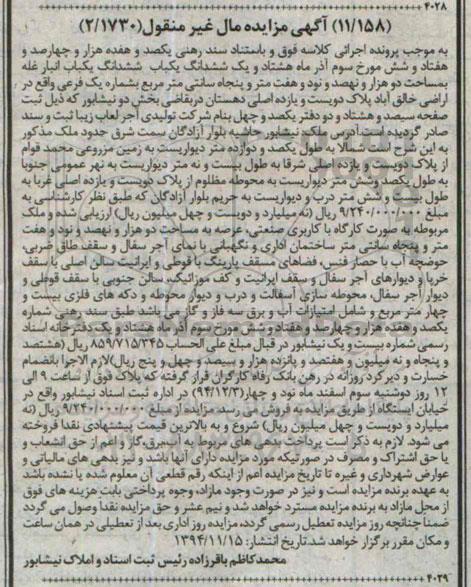 ۴۰۲۸
(۱۱/۱۵۸) آگهی مزایده مال غیر منقول(۲/۱۷۳۰)
به موجب پرونده اجرائی کلاسه فوق و باستناد سند رهنی یکصد و هفده هزار و چهارصد و
هفتاد و شش مورخ سوم آذر ماه هشتاد و یک ششدانگ یکباب ششدانگ یکباب انبار غله
بمساحت دو هزار و نهصد و نود و هفت متر و پنجاه سانتی متر مربع بشماره یک فرعی واقع در
اراضی خالق آباد پلاک دویست و یازده اصلی دهستان دربقاضی بخش دو نیشابور که ذیل ثبت
صفحه سیصد و هشتاد و دو دفتر یکصد و چهل بنام شرکت تولیدی آجر لعاب زیبا ثبت و سند
صادر گردیده است.آدرس ملک: نیشابور حاشیه بلوار آزادگان سمت شرق حدود ملک مذکور
به این شرح است: شمالا به طول یکصد و دوازده متر دیواریست به زمین مزروعی محمد قوام
از پلاک دویست و یازده اصلی شرقا به طول بیست و نه متر دیواریست به نهر عمومی جنوبا
به طول یکصد و شش متر دیواریست به محوطه مظلوم از پلاک دویست و یازده اصلی غربا به
طول بیست و شش متر درب و دیواریست به حریم بلوار آزادگان که طبق نظر کارشناسی به
مبلغ ۹/۲۴۰/۰۰۰/۰۰۰ ریال (نه میلیارد و دویست و چهل میلیون ریال) ارزیابی شده و ملک
مربوطه به صورت کارگاه با کاربری صنعتی، عرصه به مساحت دو هزار و نهصد و نود و هفت
متر و پنجاه سانتی متر ساختمان اداری و نگهبانی با نمای آجر سفال و سقف طاق ضربی،
حوضچه آب با حصار فنس، فضاهای مسقف پارینگ با قوطی و ایرانیت سالن اصلی با سقف
خرپا و دیوارهای آجر سفال و سقف ایرانیت و کف موزائیک، سالن جنوبی با سقف قوطی و
دیوار آجر سفال، محوطه سازی آسفالت و درب و دیوار محوطه و دکه های فلزی بیست و
چهار متر مربع و شامل امتیازات آب و برق سه فاز و گاز می باشد طبق سند رهنی شماره
یکصد و هفده هزار و چهارصد و هفتاد و شش مورخ سوم آذر ماه هشتاد و یک دفترخانه اسناد
رسمی شماره بیست و یک نیشابور در قبال مبلغ علی الحساب ۸۵۹/۷۱۵/۳۴۵ ریال (هشتصد
و پنجاه و نه میلیون و هفتصد و پانزده هزار و سیصد و چهل و پنج ریال)لازم الاجرا بانضمام
خسارت و دیرکرد روزانه در رهن بانک رفاه کارگران قرار گرفته که پلاک فوق از ساعت ۹ الی
۱۲ روز دوشنبه سوم اسفند ماه نود و چهار(۹۴/۱۲/۳) در اداره ثبت اسناد نیشابور واقع در
خیابان ایستگاه از طریق مزایده به فروش می رسد. مزایده از مبلغ ۹/۲۴۰/۰۰۰/۰۰۰ ریال (نه
میلیارد و دویست و چهل میلیون ریال) شروع و به بالاترین قیمت پیشنهادی نقدا فروخته
می شود. لازم به ذکر است پرداخت بدهی های مربوط به آب، برق، گاز و اعم از حق انشعاب و
یا حق اشتراک و مصرف در صورتیکه مورد مزایده دارای آنها باشد و نیز بدهی های مالیاتی و
عوارض شهرداری و غیره تا تاریخ مزایده اعم از اینکه رقم قطعی آن معلوم شده یا نشده باشد
به عهده برنده مزایده است و نیز در صورت وجود مازاد، وجوه پرداختی بابت هزینه های فوق
از محل مازاد به برنده مزایده مسترد خواهد شد و نیم عشر و حق مزایده نقدا وصول می گردد
ضمنا چنانچه روز مزایده تعطیل رسمی گردد، مزایده روز اداری بعد از تعطیلی در همان ساعت
و مکان مقرر برگزار خواهد شد. تاریخ انتشار: ۱۳۹۴/۱۱/۱۵
محمدکاظم باقرزاده رئیس ثبت اسناد و املاک نیشابور
۴۰۲۹